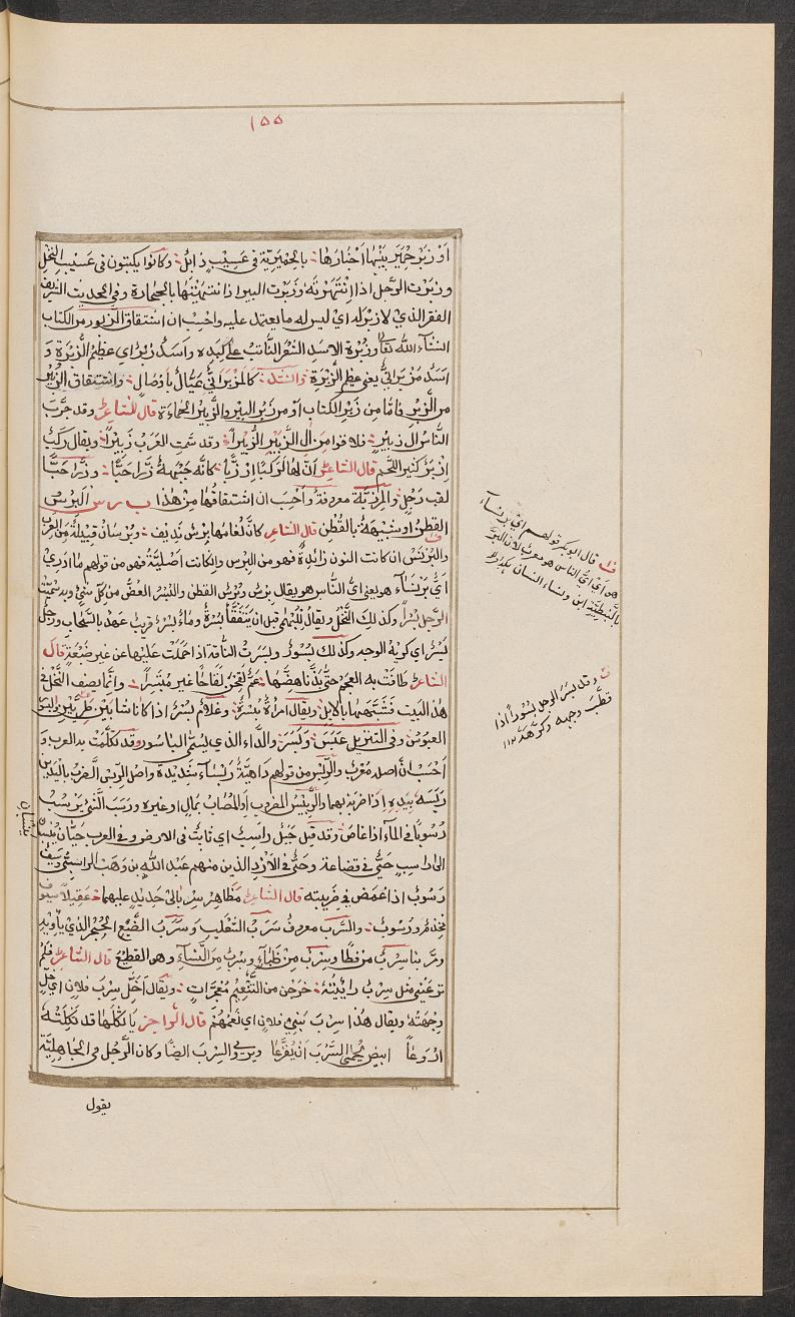 ١٥٥
او زبر حمير بينها احبارها بالحميرية في عسيب ذابل وكانوا يكتبون في عسيب النخل
وزبرت الرجل اذا انتهرته وزبرت البير اذا بالحجارة وفي الحديث الشريف
الفقر الذي لا زبر له اي ليس له ما يعتمد عليه واحسب ان اشتقاق الزبور من الكتاب
الله تعا وزبرة الاسد الشعر النابت على كبده واسد زبر اي عظيم الزبرة و
اسد مزبراني يعني عظم الزبرة وانشد كالمزبراني عيال باوصال واشتقاق الزبير
من الزبر فاما من زبر الكتاب او من زبر البير والزبير الحماءة قال الشاعر وقد جرب
الناس ال زبير فلاقوا من ال الزبير الزبيرا وقد سمت العرب زبيرا ويقال ركب
ازبر كثير اللحم قال الشاعر ان لها لركبا ازبا كانه جبهة ذرا حبا وذرا حبا
لقب رجل والمزبلة معروفة واحسب ان اشتقاقها من هذا ب ر س البرس
القطن او شبيهة بالقطن قال الشاعر كان لغامها برس نديف وبرسان قبيلة من العرب
والبرنس ان كانت النون زائدة فهو من البرس وان كانت اصلية فهو من قولهم ما ادري
اي برنساء هو يعني اي الناس هو يقال برس وبرس القطن والبسر الغض من كل شي وبه سميت
الرجل بسرا وكذلك النخل ويقال للبهمى قبل ان يتفقأ بسرة وماء بسر قريب عهد بالسحاب ورجل
بسر اي كريه الوجه وكذلك بسور وبسرت الناقة اذا حملت عليها عن غير ضبعة قال
الشاعر طافت به العجم حتى بذ ناهضها عم لقحن لقاحا غير مبتسر وانما يصف النخل في
هذا البيت فشبهها بالابل ويقال امراة بسرة وغلام بسر اذا كانا شابين طريين والبسر
العبوس وفي التنزيل عبس وبسر والداء الذي يسمى الباسور وقد تكلمت به العرب و
احسب ان اصله معرب والربس من قولهم داهية ربساء شديدة واصل الربس الضرب باليدين
ربسه بيديه اذا ضربه بهما والربيس المضروب او المصاب بمال او غيره ورسب الشي يرسب
رسوبا في الماء اذا غاص وقد قيل جبل راسب اي ثابت في الارض وفي العرب حيان ينسبان
الى راسب حي في قضاعة وحي في الازد الذين منهم عبد الله بن وهب الراسبي وسيف
رسوب اذا غمض في ضريبته قال الشاعر مظاهر سربالي حديد عليهما عقيلا سيوف
مخذم ورسوب والسرب معروف سرب الثعلب وسرب الضبع الجحر الذي ياوي اليه
ومر بنا سرب من قطا وسرب من ظباء وسرب من النساء وهو القطيع قال الشاعر فلم
تر عيني مثل سرب رايته خرجن من التنعيم معتجرات ويقال خل سرب فلان اي خل
وجهته ويقال هذا سرب بني فلان اي لنعمهم قال الراجز يا ثكلها قد ثكلته
اروعا ابيض يحمي السرب ان يفزعا ويروى السرب ايضا وكان الرجل في الجاهلية
يقول
ينسبان
قال ابو بكر قولهم اي برنساء
هو اي اي الناس هو معرب لان البر
بالنبطية ابن ونساء الانسان
وقد بسر الرجل بسورا اذا
قطب وجهه وكرهه